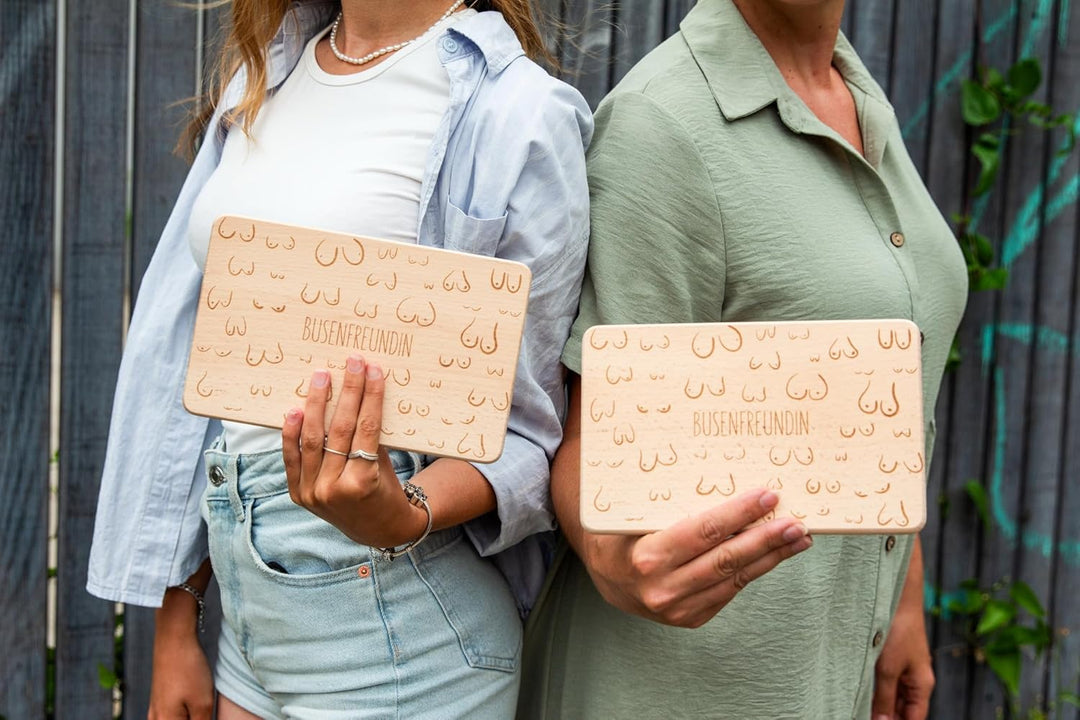 BUSENFREUNDIN
BUSENFREUNDIN